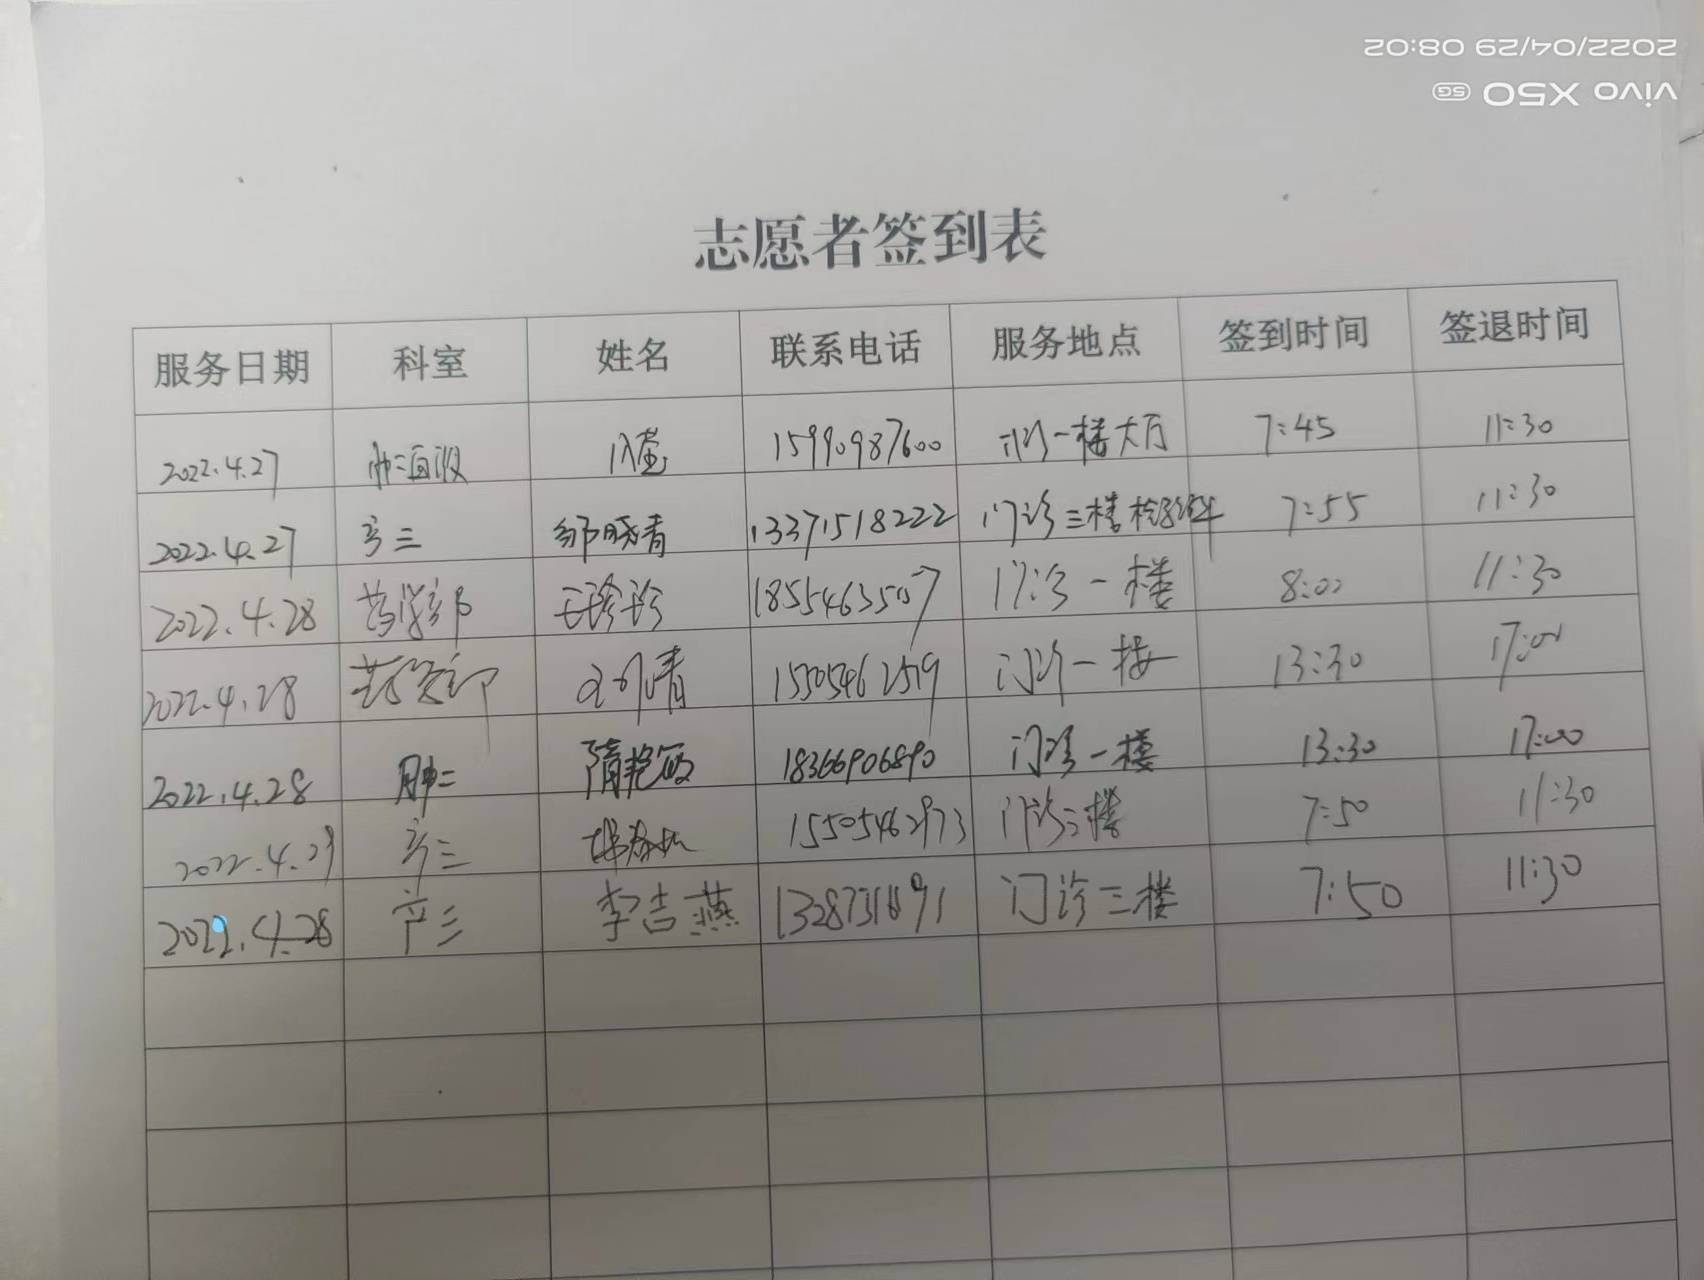 2022/04/29 08:02
vivo X50 5G
志愿者签到表
服务日期 科室 姓名 联系电话 服务地点 签到时间 签退时间
2022.4.27 15990987600 门诊一楼大厅 7:45 11:30
2022.4.27 产三 邹晓青 13371518222 门诊三楼 7:55 11:30
2022.4.28 药学部 王珍珍 门诊一楼 8:00 11:30
2022.4.28 药学部 15505462519 门诊一楼 13:30 17:00
2022.4.28 肿二 隋艳 18366906890 门诊一楼 13:30 17:00
产三 15505462973 门诊三楼 7:50 11:30
2022.4.28 产三 李吉燕 门诊三楼 7:50 11:30